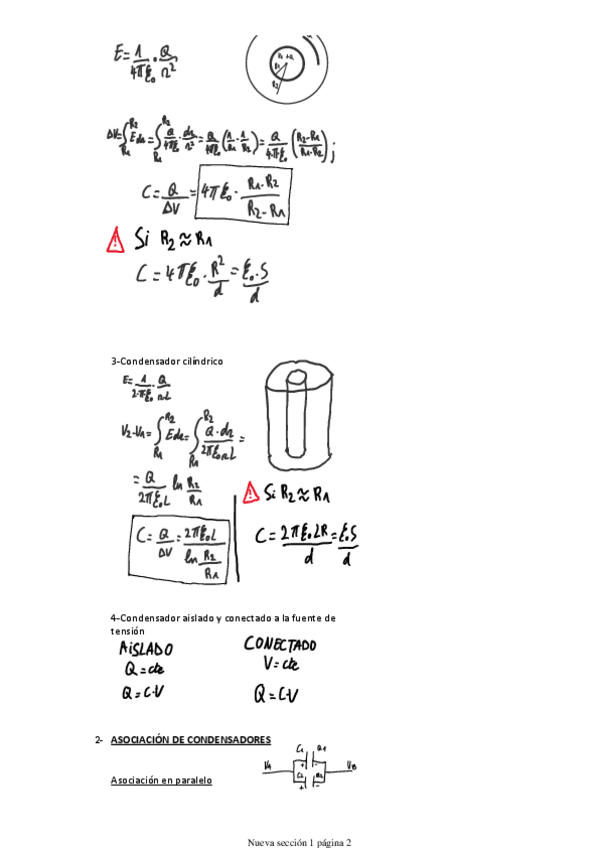 E = 1/4πξ₀ · Q/r²
R₁ +Q
R₁
R₂
ΔV = ∫_{R₁}^{R₂} E dr = ∫_{R₁}^{R₂} Q/4πξ₀ · dr/r² = Q/4πξ₀ (1/R₁ - 1/R₂) = Q/4πξ₀ (R₂-R₁/R₁·R₂) ;
C = Q/ΔV = 4πξ₀ · R₁·R₂/R₂-R₁
Si R₂ ≈ R₁
C = 4πξ₀ · R²/d = ξ₀·S/d
3-Condensador cilíndrico
E = 1/2πξ₀ · Q/r·L
V₂-V₁ = ∫_{R₁}^{R₂} E dr = ∫_{R₁}^{R₂} Q·dr/2πξ₀rL =
= Q/2πξ₀L ln R₂/R₁
Si R₂ ≈ R₁
C = Q/ΔV = 2πξ₀L/ln R₂/R₁
C = 2πξ₀LR/d = ξ₀S/d
4-Condensador aislado y conectado a la fuente de
tensión
AiSLADO
CONECTADO
Q = cte
V = cte
Q = C·V
Q = C·V
2- ASOCIACIÓN DE CONDENSADORES
C₁ Q₁
V_A V_B
+ -
C₂ Q₂
+ -
Asociación en paralelo
Nueva sección 1 página 2